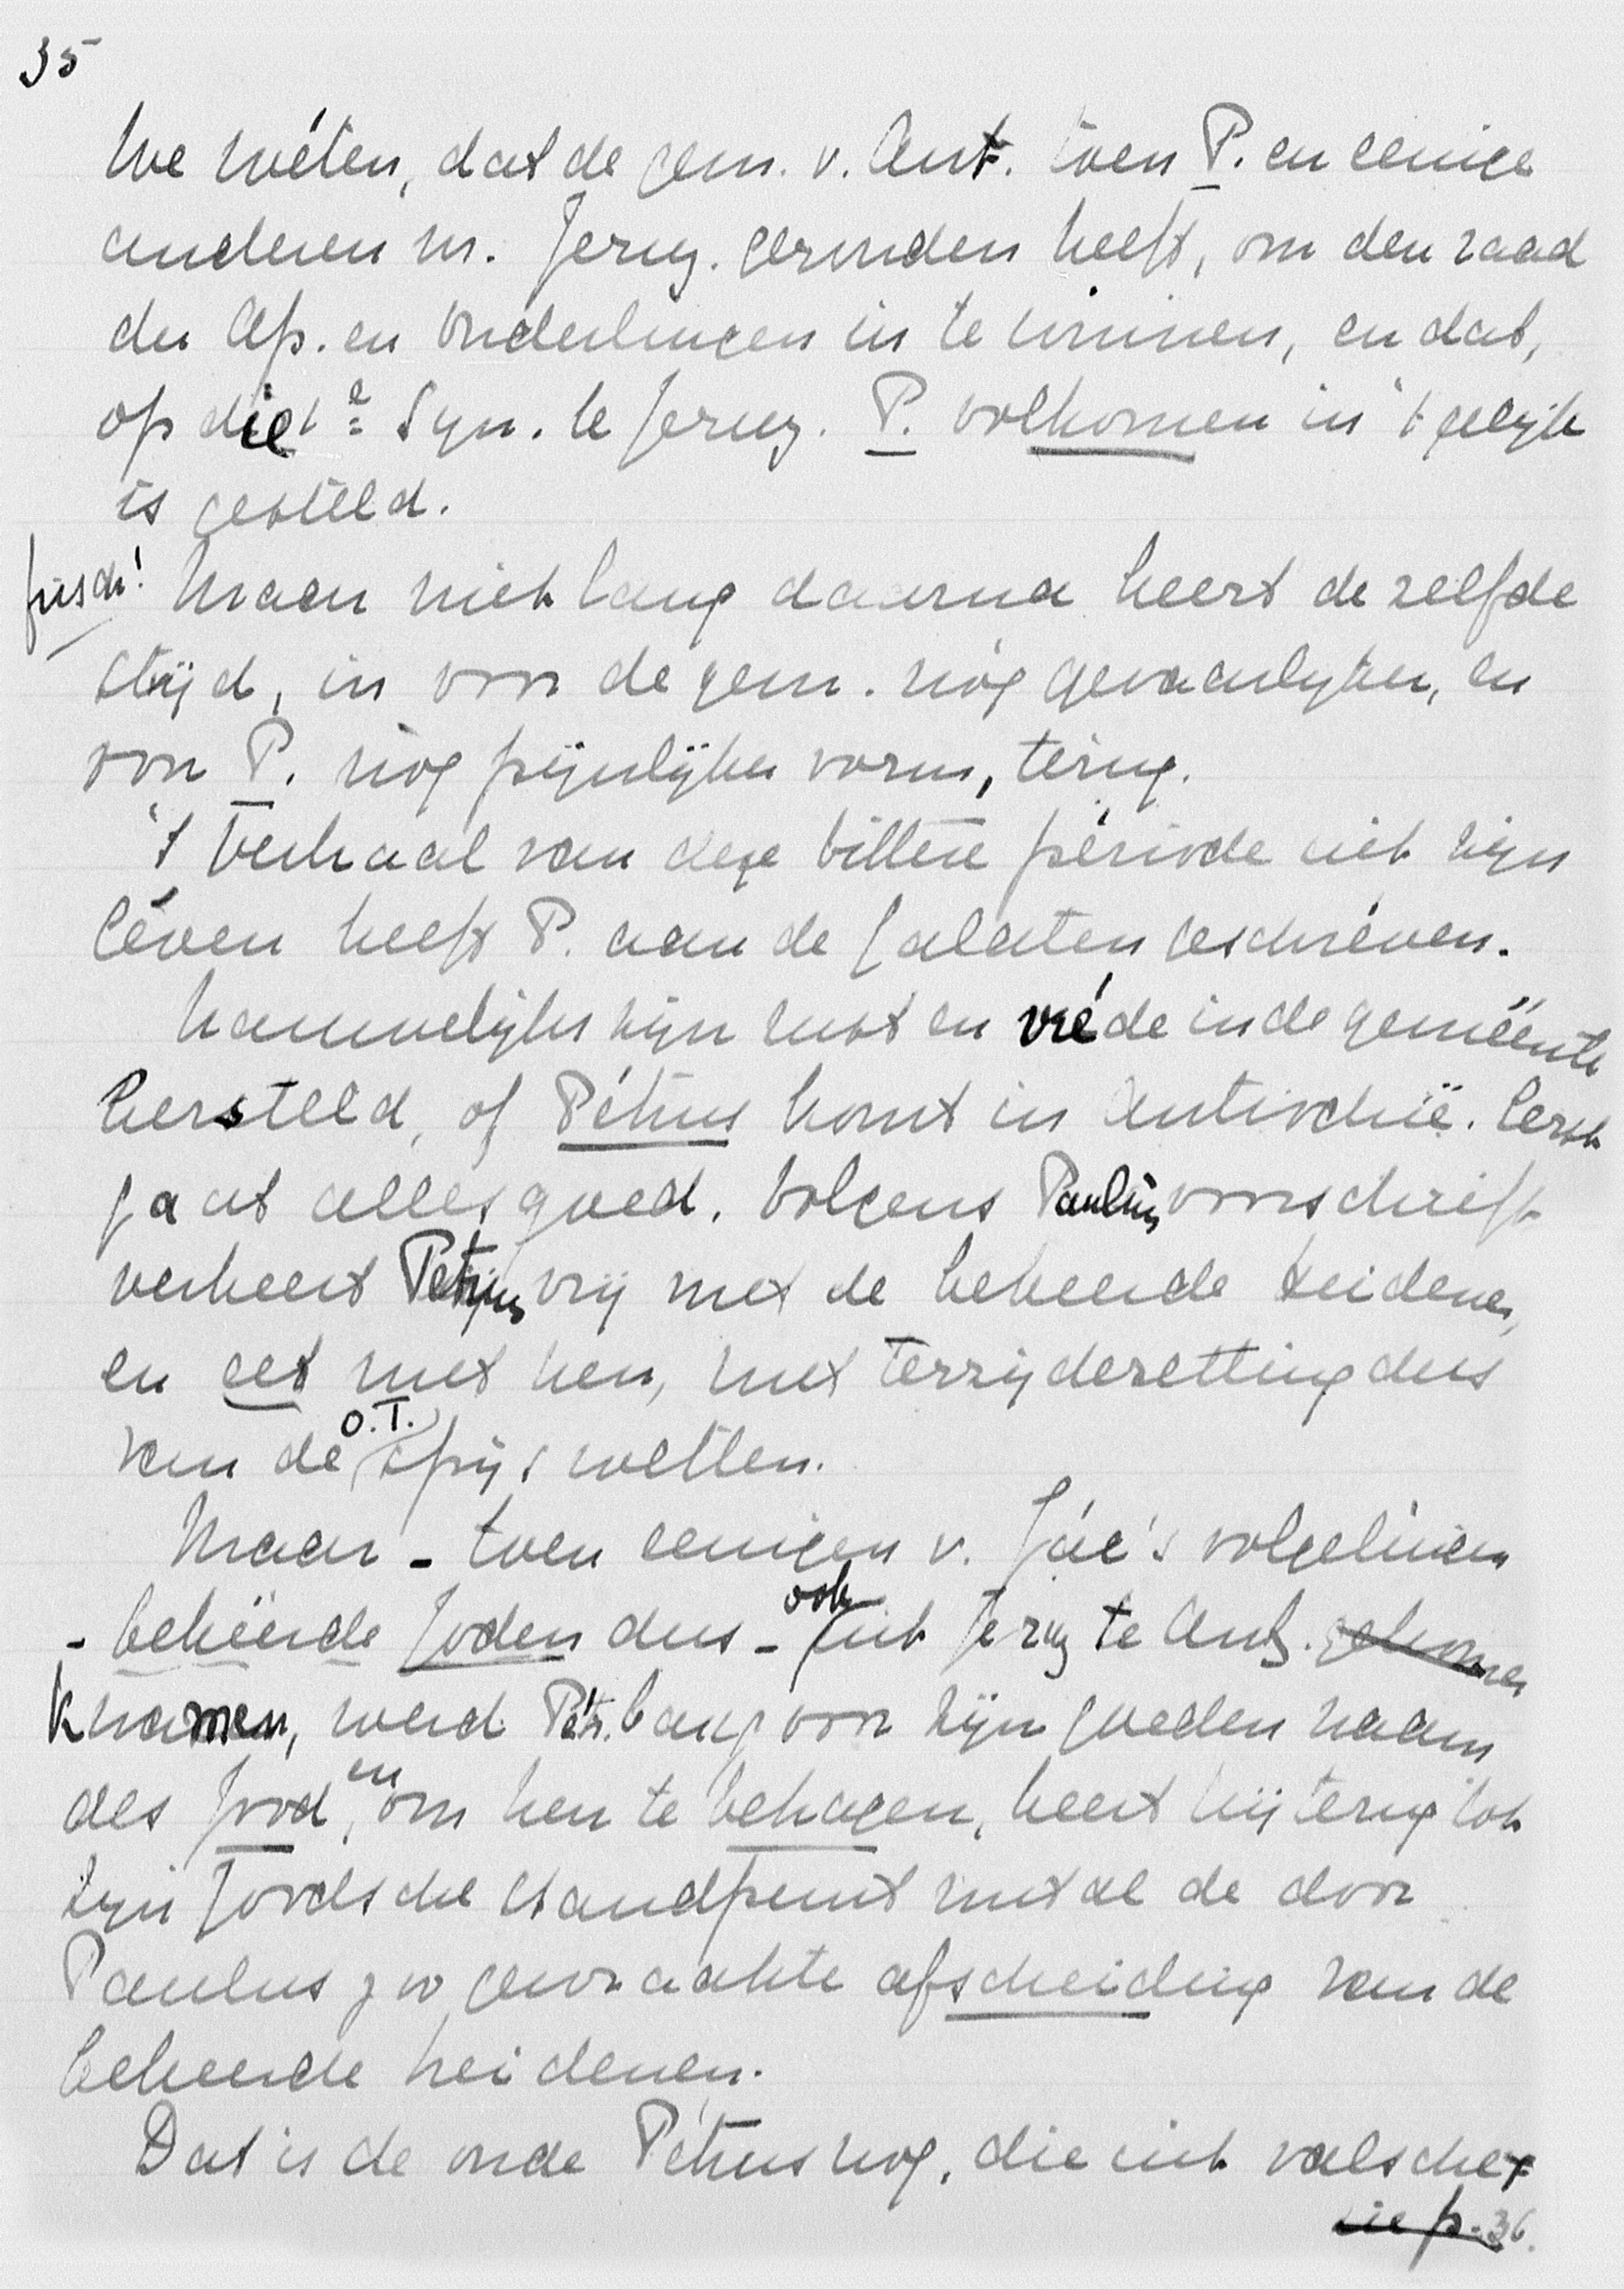 35
We wéten, dat de gem. v. Ant. toen P. en eenige
anderen n. Jeruz. gezonden heeft, om den raad
der Ap. en Ouderlingen in te winnen, en dat,
op die 1e Syn. te Jeruz. P. volkomen in 't gelijk
is gesteld.
frisch! Maar niet lang daarna keert dezelfde
strijd, in voor de gem. nóg gevaarlijker, en
voor P. nóg pijnlijker vorm, terug.
't Verhaal van deze bittere période uit zijn
léven heeft P. aan de Galaten geschréven.
Nauwelijks zijn rust en vréde in de geméénte
hersteld, of Pétrus komt in Antiochië. Eerst
gaat alles goed. Volgens Paulus voorschrift
verkeert Petrus vrij met de bekeerde heidenen,
en eet met hen, met terzijdezetting dus
van de O.T. spijswetten.
Maar - toen eenigen v. Jac's volgelingen
- bekeerde Joden dus - ook uit Jeruz te Ant. gekomen
kwamen, werd Pétr. bang voor zijn goeden naam
als Jood, en om hen te behagen, keert hij terug tot
zijn Joodsche standpunt met al de door
Paulus zoo gewraakte afscheiding van de
bekeerde heidenen.
Dat is de oude Pétrus nog, die uit valsche
zie p. 36.